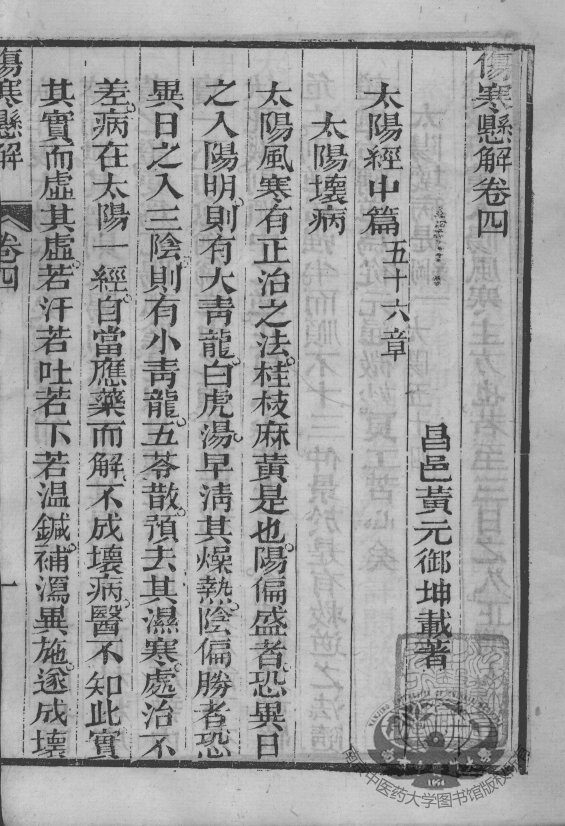 傷寒懸解卷四
昌邑黃元御坤載著
太陽經中篇五十六章
太陽壞病
太陽風寒有正治之法桂枝麻黃是也陽偏盛者恐異日
之入陽明則有大青龍白虎湯早清其燥熱陰偏勝者恐
異日之入三陰則有小青龍五苓散預去其濕寒處治不
差病在太陽一經自當應藥而解不成壞病醫不知此實
其實而虛其虛若汗若吐若下若溫鍼補瀉異施遂成壞
傷寒懸解
卷四
一
中医药大学图书馆版权